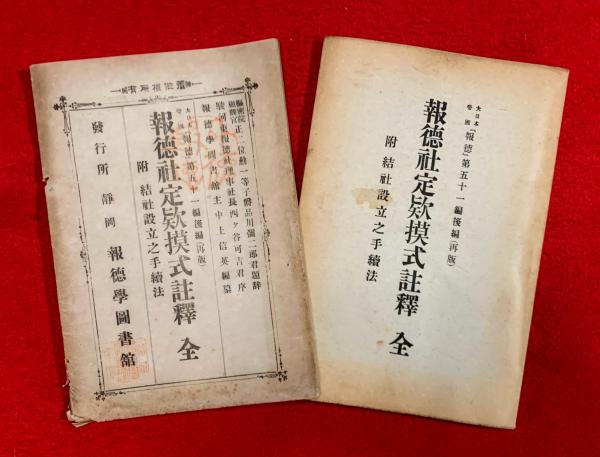 版權所有
樞密院顧問官正二位勳一等子爵品川彌二郎君題辭
駿河東報德社理事社長西ヶ谷可吉君序
報德學圖書館主中上信英編纂
大日本帝國「報德」第五十一編後編(再版)
報德社定欵摸式註釋 全
附 結社設立之手續法
發行所 靜岡 報德學圖書館
大日本帝國「報德」第五十一編後編(再版)
報德社定欵摸式註釋 全
附 結社設立之手續法